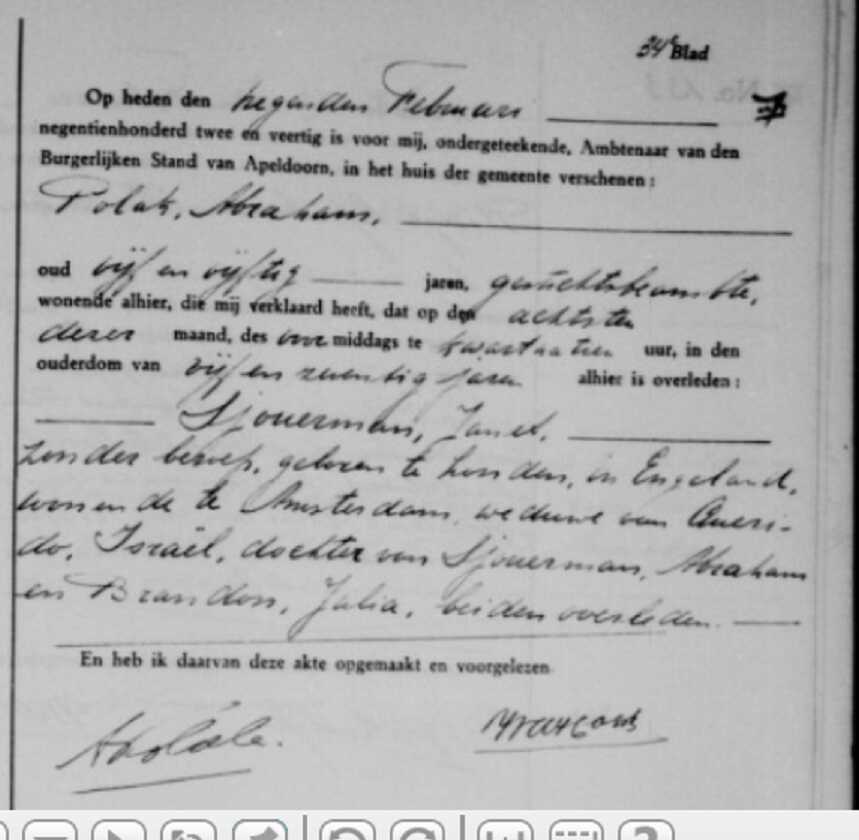 34e Blad
Op heden den negenden Februari
negentienhonderd twee en veertig is voor mij, ondergeteekende, Ambtenaar van den
Burgerlijken Stand van Apeldoorn, in het huis der gemeente verschenen:
Polak, Abraham,
oud vijf en vijftig jaren, gestichtsbeambte,
wonende alhier, die mij verklaard heeft, dat op den achtsten
dezer maand, des voormiddags te kwart na tien uur, in den
ouderdom van vijf en zeventig jaren alhier is overleden:
Sjouerman, Janet,
zonder beroep, geboren te Londen, in Engeland,
wonende te Amsterdam, weduwe van Queri-
do, Israël, dochter van Sjouerman, Abraham
en Brandon, Julia, beiden overleden.
En heb ik daarvan deze akte opgemaakt en voorgelezen